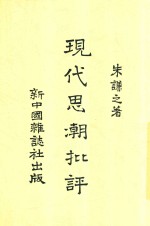 朱謙之著
現代思潮批評
新中國雜誌社出版